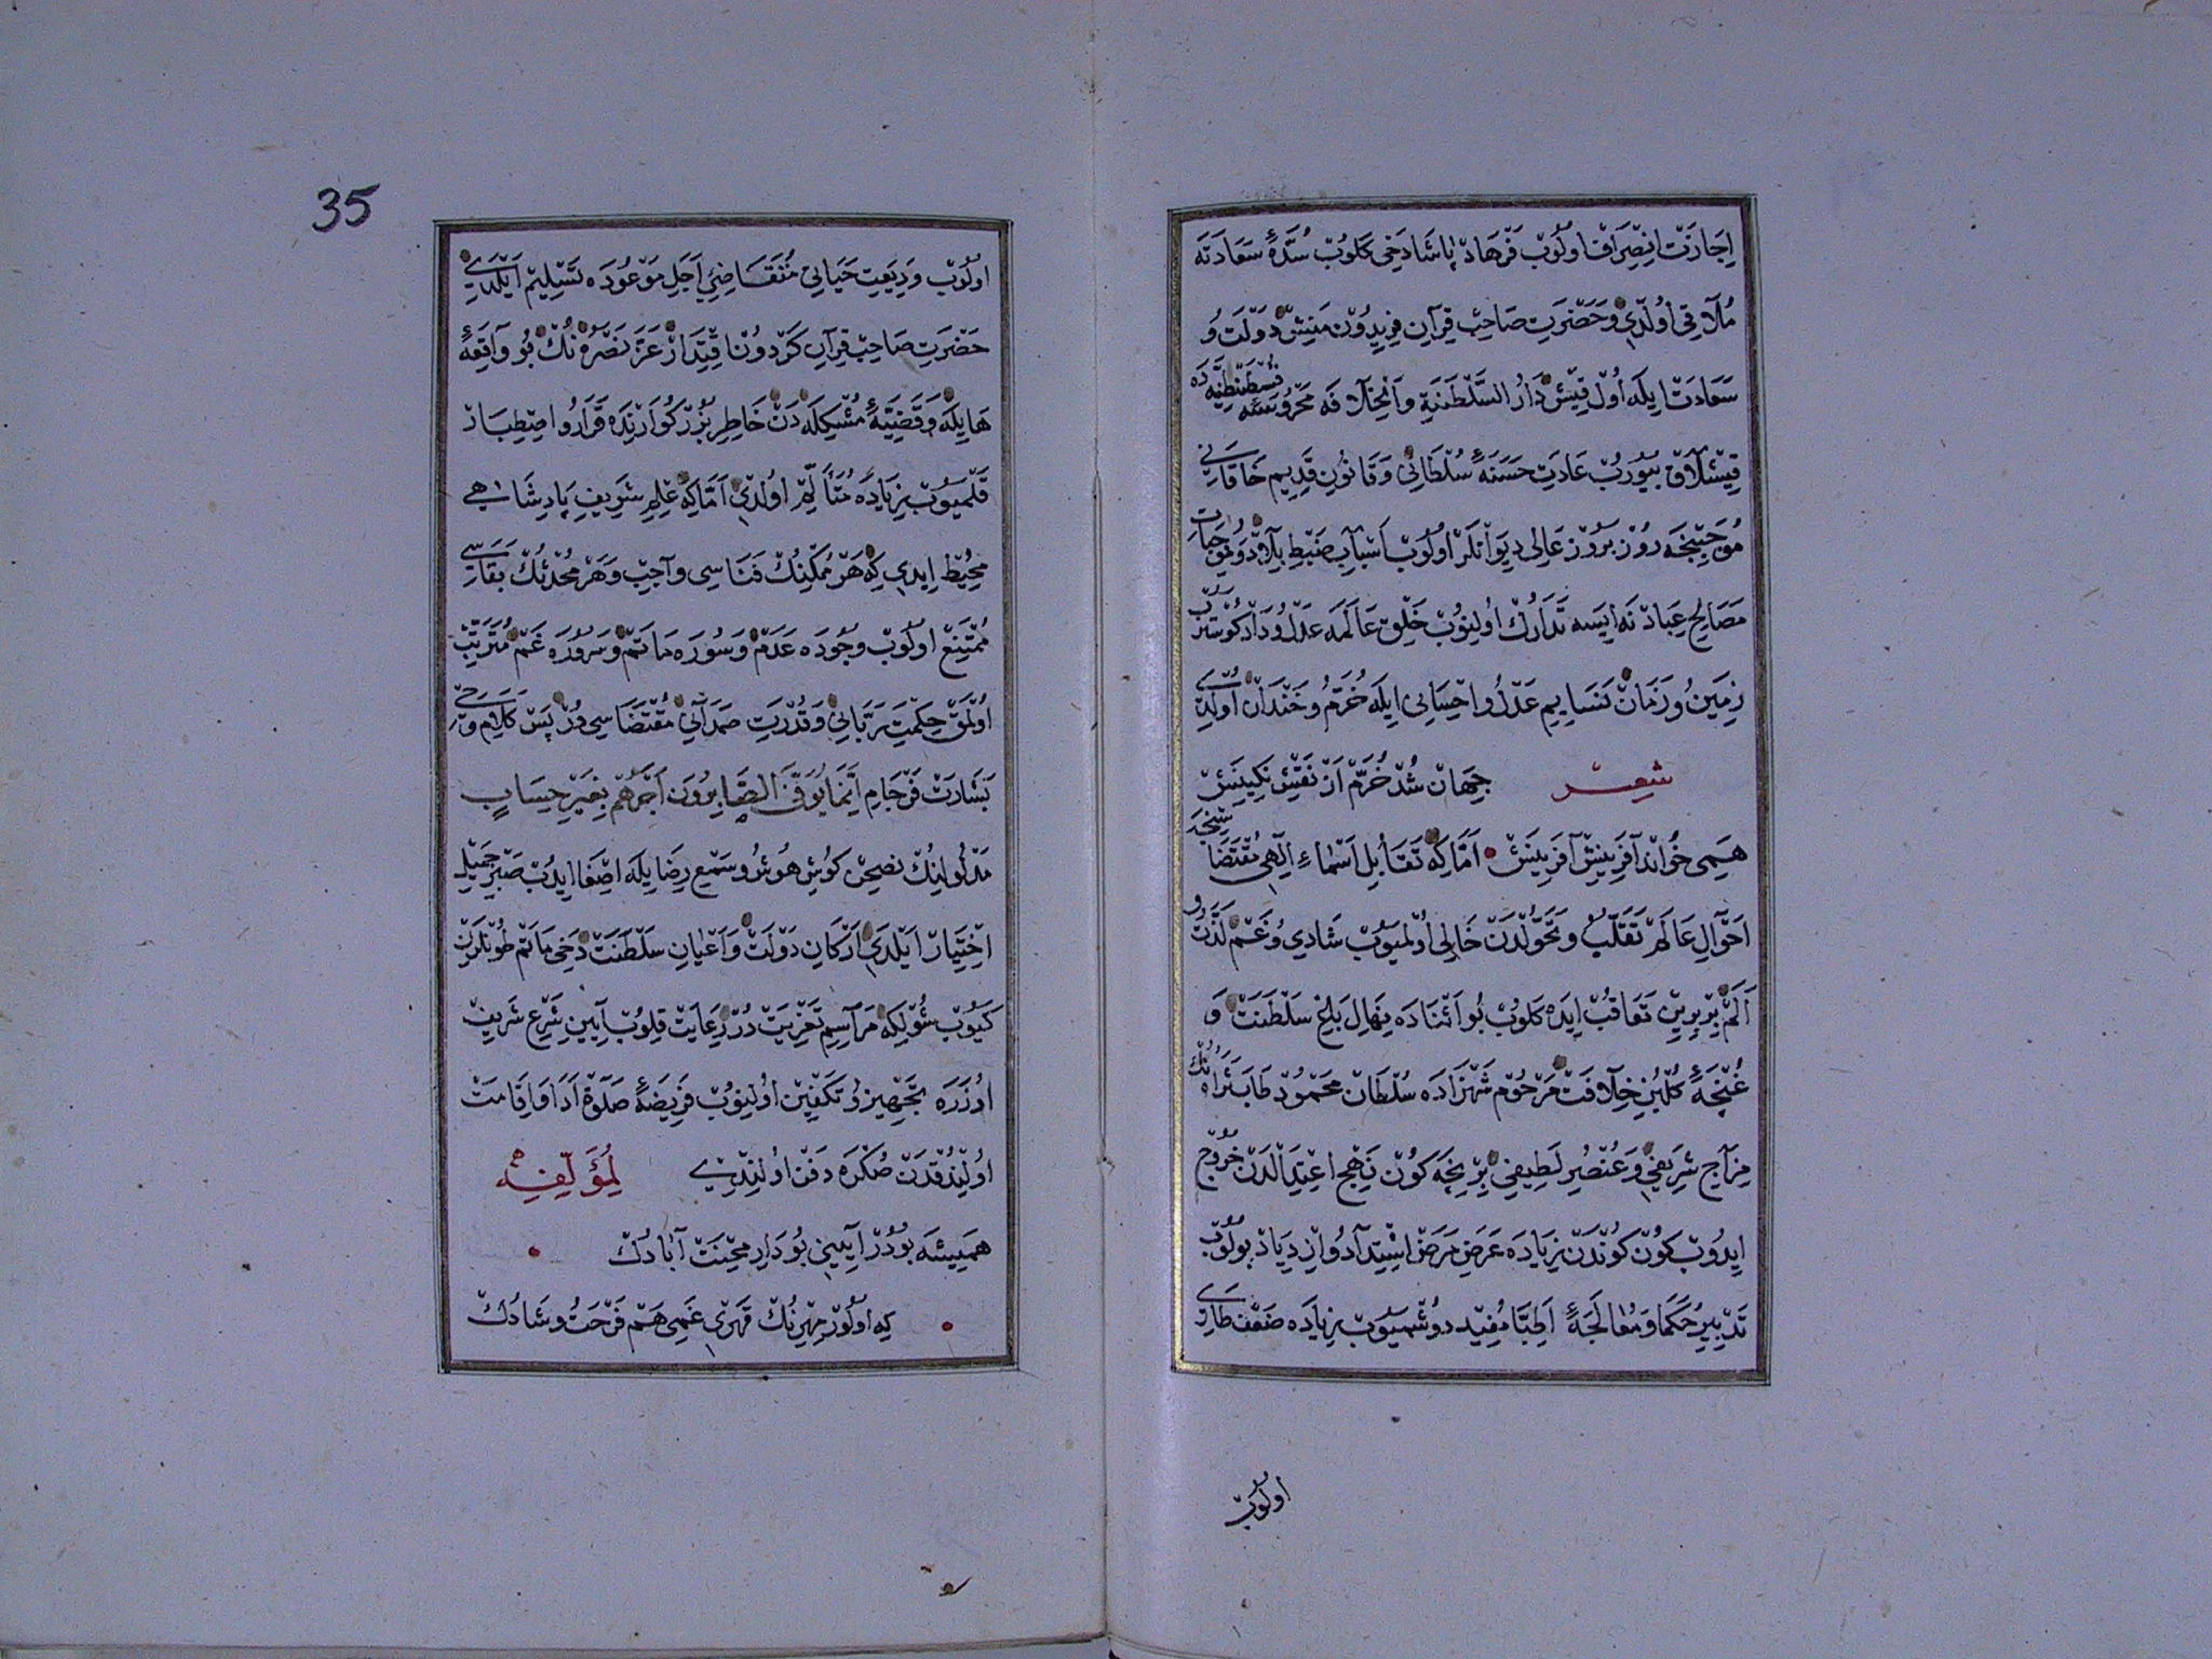 اِجَازَتْ اِنْصِرَافْ اولُوبْ فَرْهَادْ پَاشَا دَخِى كَلُوبْ سُدَّۀ سَعَادَتَه
مُلَاقِى اُولْدِى وَحَضْرَتِ صَاحِبْ قِرَانِ فِرِيدُونْ مَنِشْ دَوْلَتُ و
سَعَادَتْ اِيلَه اُولْ قِيشْ دَارُ السَّلْطَنَةِ وَالْخِلَافَه مَحْرُوسَۀ قُسْطَنْطِنِيَّه دَه
قِيشْلَاقْ بُيُورُبْ عَادَتِ حَسَنَۀ سُلْطَانِى وَقَانُونِ قَدِيمِ خَاقَانِى
مُوجَبِنْجَه رُوزْ بَرُوزْ عَالِى دِيوَانْلَرْ اُولُوبْ اَسْبَابِ ضَبْطِ بِلَادْ وَمُوجِبَاتِ
مَصَالِحِ عِبَادْ نَه اِيسَه تَدَارُكْ اُولِنُوبْ خَلْقِ عَالَمَه عَدْلُ و دَادْ كُوسْتَرُبْ
زَمِينُ و زَمَانْ نَسَايِمِ عَدْلُ و اِحْسَانِى اِيلَه خُرَّمُ و خَنْدَانْ اُولْدِى
شعر جِهَانْ شُدْ خُرَّمْ اَزْ نَقْشِ نَكِينَشْ
هَمِى خُوَانْد آفَرِينِشْ آفَرِينَشْ اَمَّا كِه تَقَابُلِ اَسْمَاءِ اِلٰهِى مُقْتَضَاسِنْجَه
اَحْوَالِ عَالَمْ تَقَلُّبْ وَتَحَوُّلْدَنْ خَالِى اُولْمَيُوبْ شَادِى وُ غَمْ لَذَّتْ و
اَلَمْ بِرْبِرِينْ تَعَاقُبْ اِيدَه كَلُوبْ بُو اَثْنَادَه نِهَالِ بَاغِ سَلْطَنَتْ وَ
غُنْچَۀ كُلْبُنِ خِلَافَتْ مَرْحُومْ شَهْزَادَه سُلْطَانْ مَحْمُودْ طَابَ ثَرَاهُ نُكْ
مِزَاجِ شَرِيفِى وَعُنْصُرِ لَطِيفِى بِرْ نِيجَه كُونْ نَهْجِ اِعْتِدَالْدَنْ خُرُوجْ
اِيدُوبْ كُونْ كُونْدَنْ زِيَادَه عَرَضِ مَرَضْ اِشْتِدَادُ و اِزْدِيَادْ بُولُوبْ
تَدْبِيرِ حُكَمَا وَمُعَالَجَۀ اَطِبَّا مُفِيد دُوشْمَيُوبْ زِيَادَه ضَعْفْ طَارِى
اولُوبْ
35
اولُوبْ وَدِيعَتِ حَيَاتِى مُتَقَاضِئِ اَجَلِ مَوْعُودَه تَسْلِيمْ اَيْلَدِى
حَضْرَتِ صَاحِبْ قِرَانِ كَرْدُونْ اقْتِدَارْ عَزَّ نَصْرُهُ نُكْ بُو وَاقِعَۀ
هَايِلَه وَقَضِيَّۀ مُشْكِلَه دَنْ خَاطِرِ بُزُرْكُوَارْنْدَه قَرَارُ و اصْطِبَارْ
قَلْمَيُوبْ زِيَادَه مُتَأَلِّمْ اولْدِى اَمَّا كِه عِلْمِ شَرِيفِ پَادِشَاهِى
مُحِيطْ اِيدِى كِه هَرْ مُمْكِنُكْ فَنَاسِى وَاجِبْ وَهَرْ مُحْدَثُكْ بَقَاسِى
مُمْتَنِعْ اولُوبْ وجُودَه عَدَمْ وَسُورَه مَاتَمْ وسُرُورَه غَمْ مُتَرَتِّبْ
اُولْمَقْ حِكْمَتِ رَبَّانِى وَقُدْرَتِ صَمَدَانِى مُقْتَضَاسِى دُرْ پَسْ كَلَامِ وَحْىِ
بَشَارَتْ فَرْجَامِ اِنَّمَا يُوَفَّى الصَّابِرُونَ اَجْرَهُمْ بِغَيْرِ حِسَابٍ
مَدْلُولِنُكْ نُصْحِنْ كُوشِ هُوشُ و سَمْعِ رِضَا يِلَه اِصْغَا ايدُبْ صَبْرِ جَمِيل
اِخْتِيَارْ اَيْلَدِى اَرْكَانِ دَوْلَتْ وَاَعْيَانِ سَلْطَنَتْ دَخِى مَاتَمْ طُونْلَرِنْ
كَيُوبْ شُولْكِه مَرَاسِمِ تَعْزِيَتْ دُرْ رِعَايَتْ قِلُوبْ آيِينِ شَرْعِ شَرِيفْ
اُوزَرَه تَجْهِيزُ و تَكْفِينْ اُولِنُوبْ فَرِيضَۀ صَلٰوةْ اَدَا وَاِقَامَتْ
اُولِنْدُقْدَنْ صُكْرَه دَفْنْ اولِنْدِى لِمُؤَلِّفِهِ
هَمِيشَه بُودُرْ آيِينِى بُو دَارِ مِحْنَتْ آبَادُكْ
كِه اولُورْ مِهْرِنُكْ قَهْرِى غَمِى هَمْ فَرْحَتُ و شَادُكْ